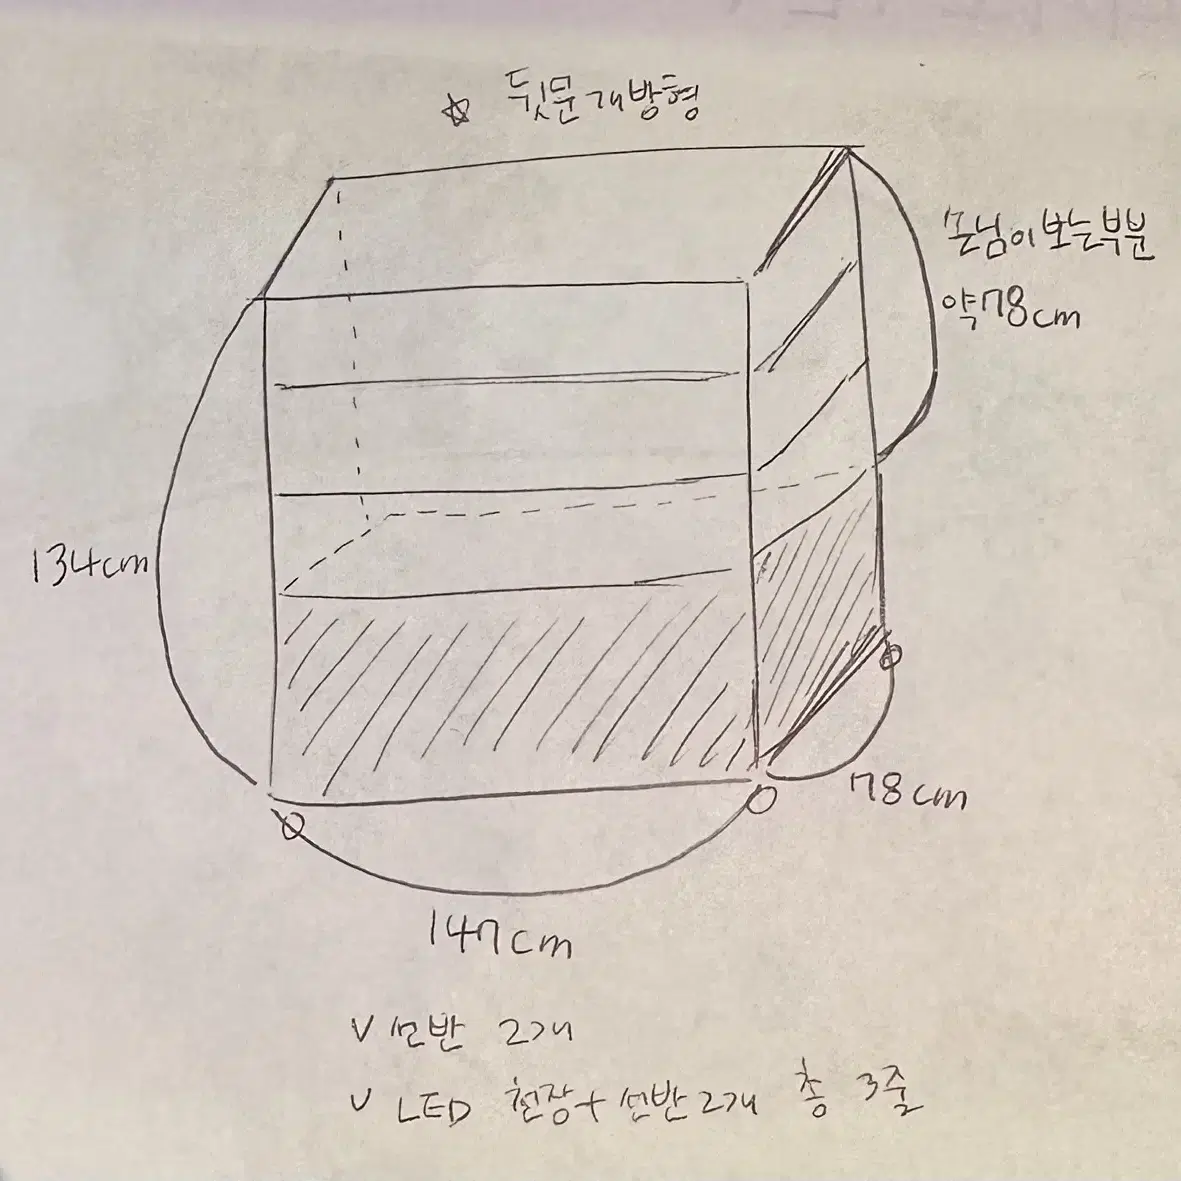 ☆ 뒷문개방형
손님이 보는부분
약78cm
134cm
78cm
147cm
V 선반 2개
V LED 천장+선반2개 총 3줄